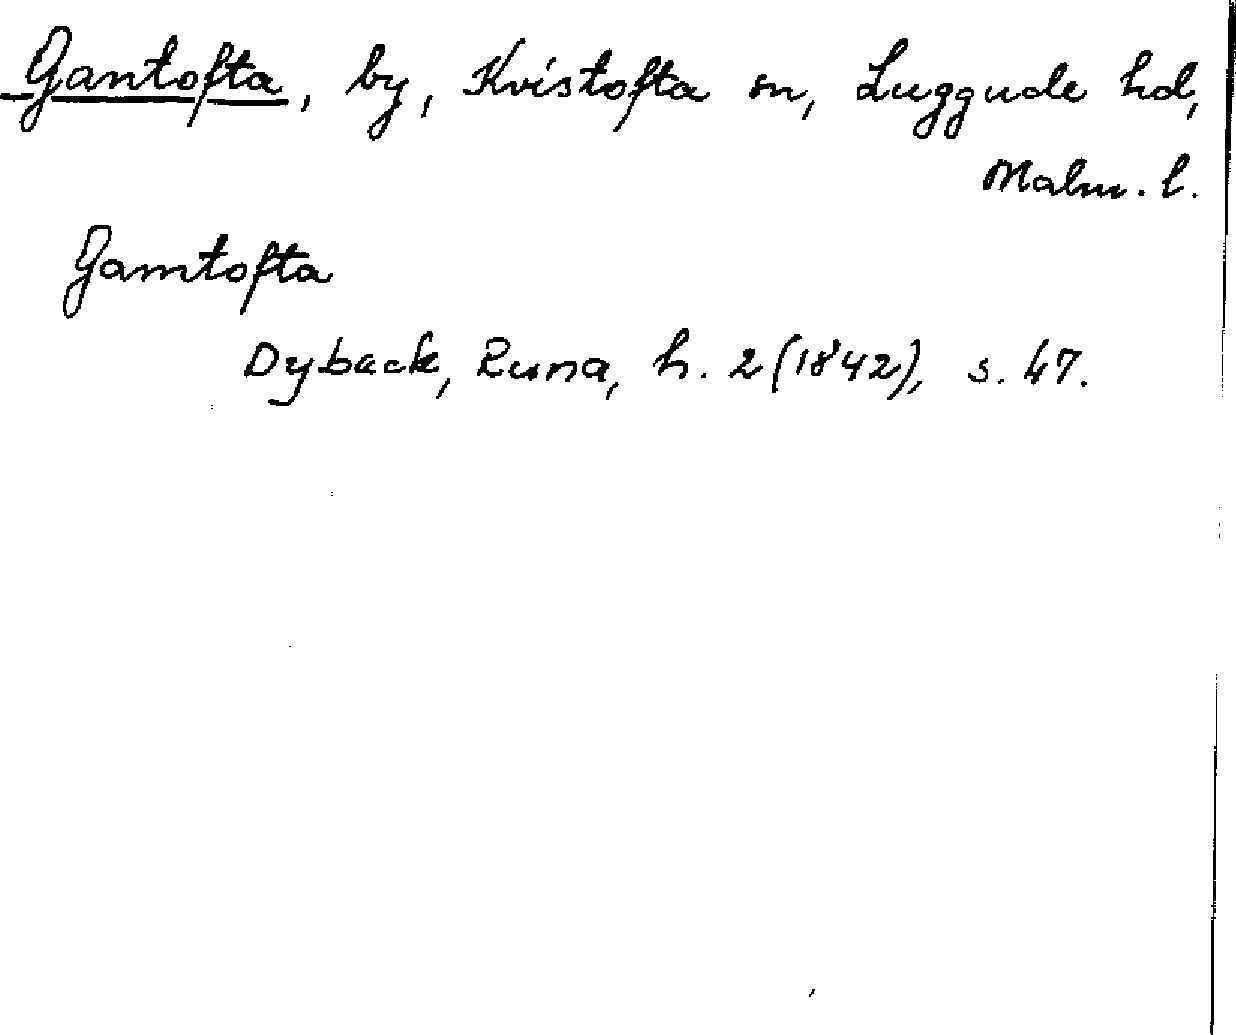 Gantofta, by, Kvistofta sn, Luggude hd,
Malm. l.
Gamtofta
Dyback, Runa, h. 2 (1842), s. 47.